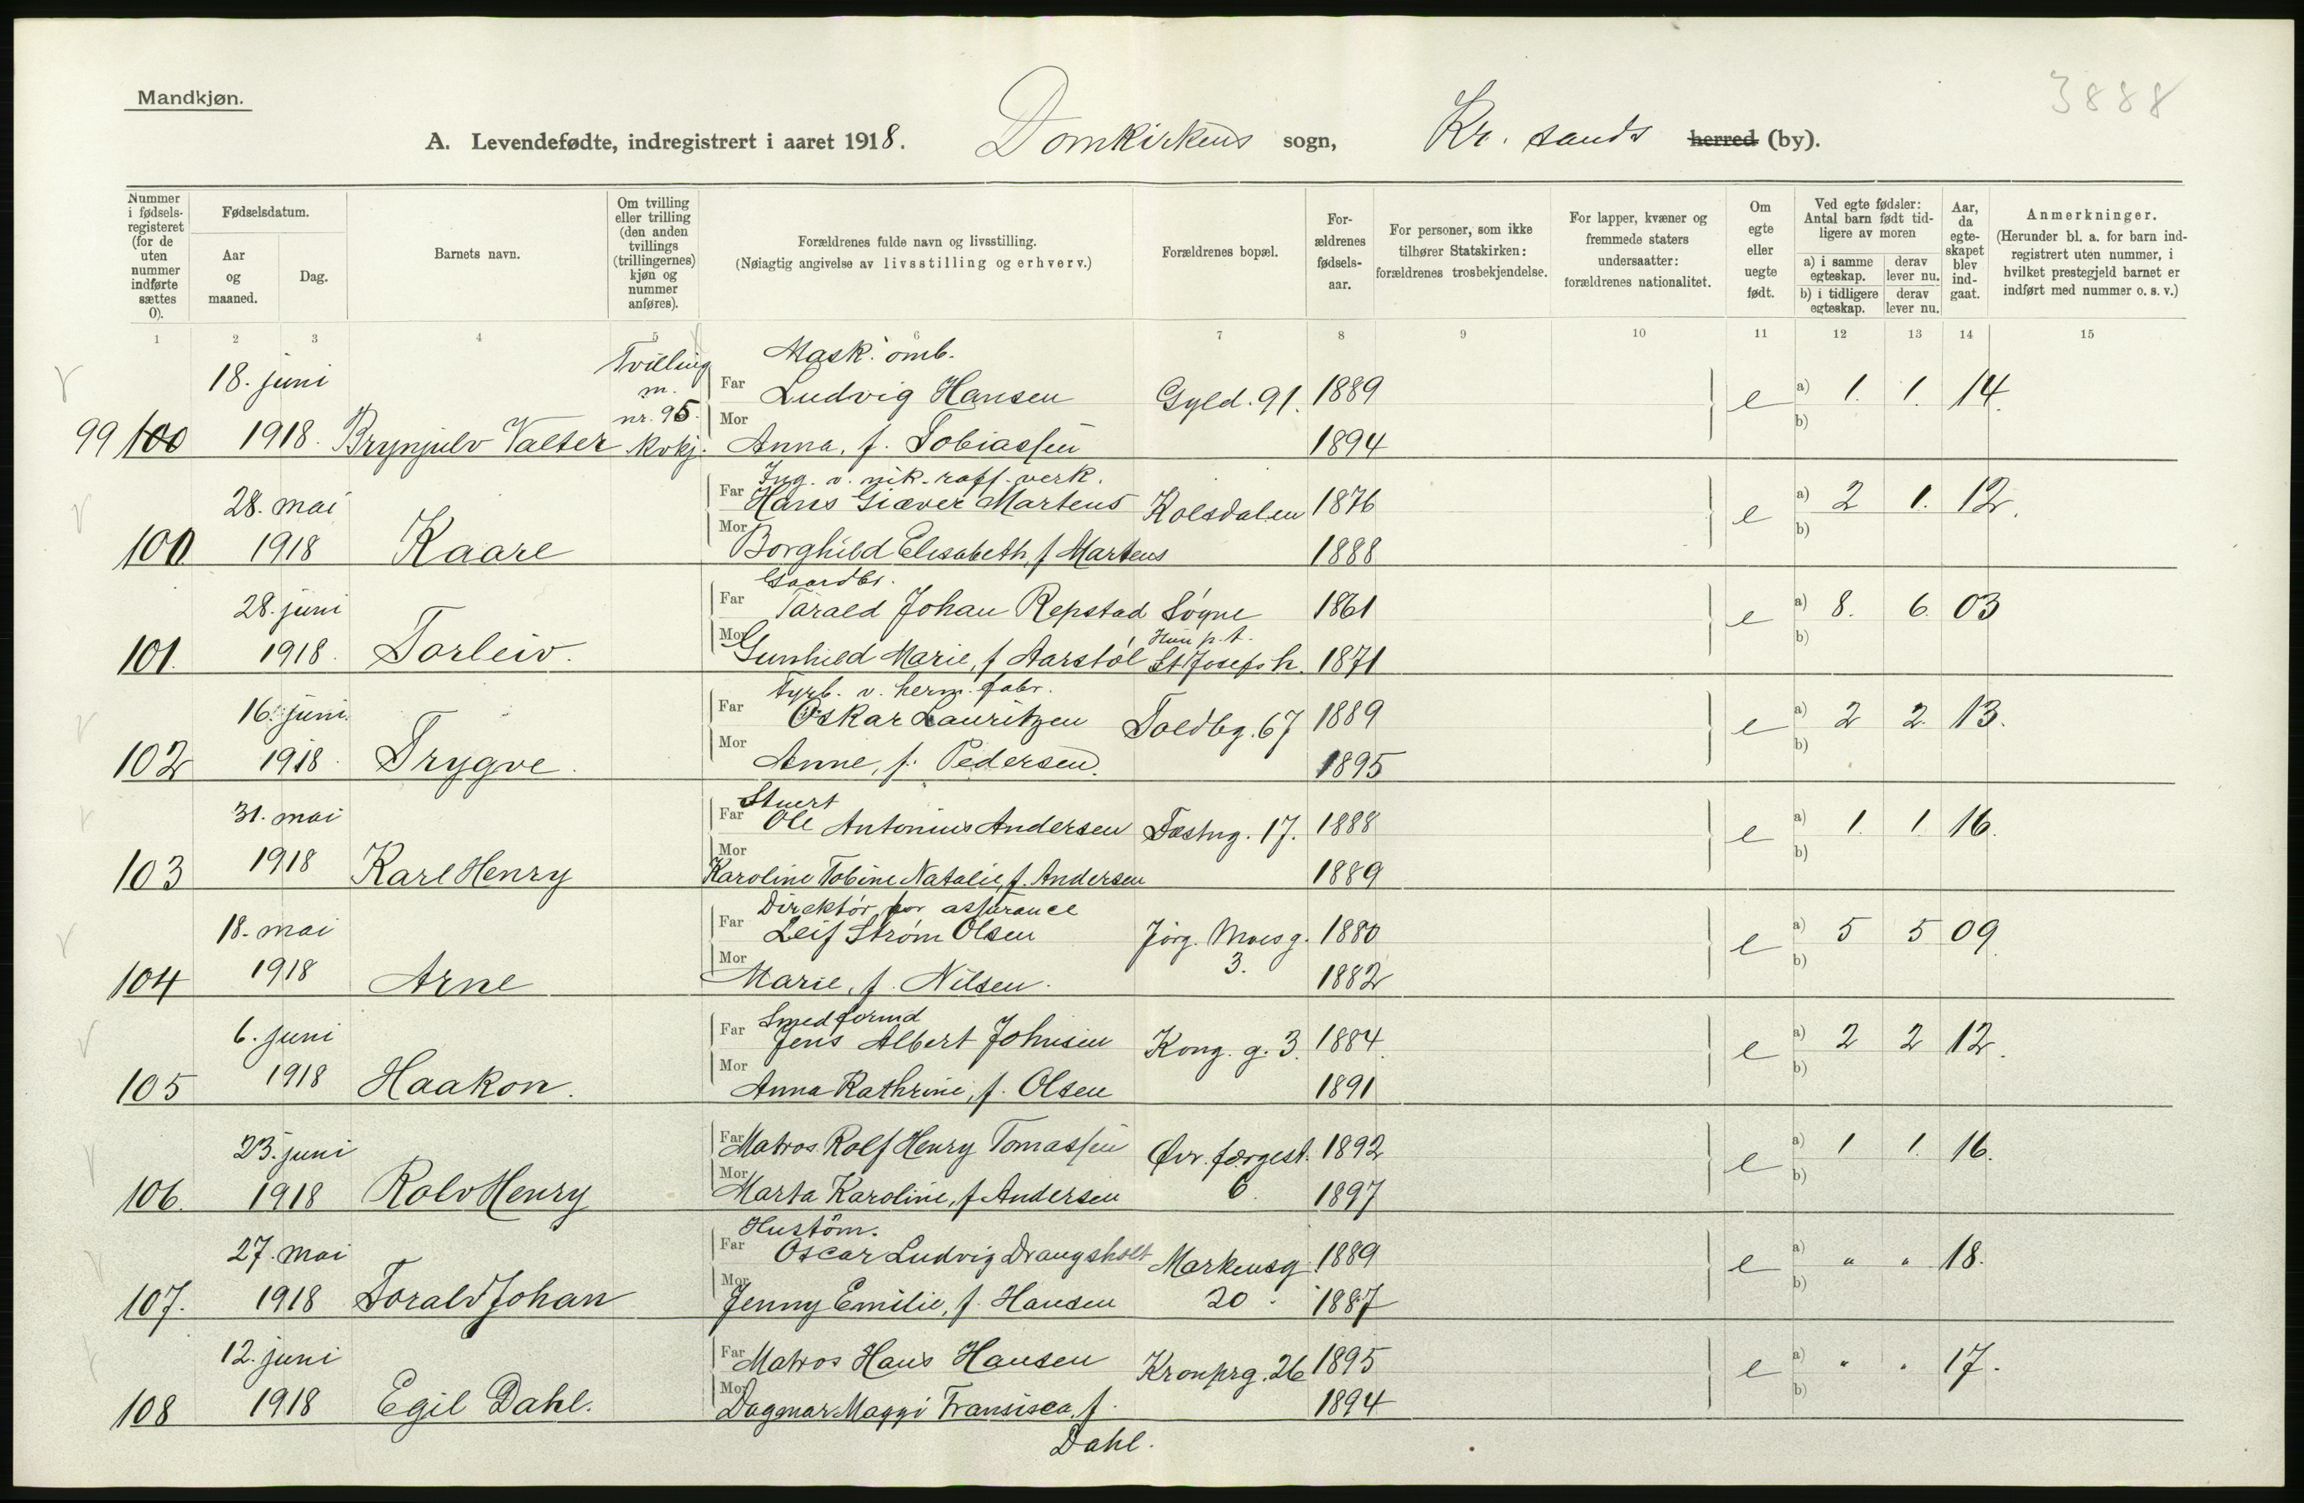 3888
Mandkjøn.
A. Levendefødte, indregistrert i aaret 1918. Domkirkens sogn, Kr. sands herred (by).
Nummer i fødselsregisteret (for de uten nummer indførte sættes 0).
Fødselsdatum.
Aar og maaned.
Dag.
Barnets navn.
Om tvilling eller trilling (den anden tvillings (trillingernes) kjøn og nummer anføres).
Forældrenes fulde navn og livsstilling.
(Nøiagtig angivelse av livsstilling og erhverv.)
Forældrenes bopæl.
Forældrenes fødselsaar.
For personer, som ikke tilhører Statskirken: forældrenes trosbekjendelse.
For lapper, kvæner og fremmede staters undersaatter: forældrenes nationalitet.
Om egte eller uegte født.
Ved egte fødsler: Antal barn født tidligere av moren
a) i samme egteskap. derav lever nu.
b) i tidligere egteskap. derav lever nu.
Aar, da egteskapet blev indgaat.
Anmerkninger.
(Herunder bl. a. for barn indregistrert uten nummer, i hvilket prestegjeld barnet er indført med nummer o. s. v.)
1 2 3 4 5 6 7 8 9 10 11 12 13 14 15
Tvilling Mask. omb.
18. juni m. Far Ludvig Hansen Gyld. 91. 1889 e a) 1. 1. 14.
nr. 95. Mor b)
99 100 1918. Brynjulv Valter kvkj. Anna, f. Tobiassen 1894
Ing. v. nik. raff. verk.
28. mai Far Hans Giæver Martens Kolsdalen 1876 e a) 2 1. 12.
Mor b)
100 1918 Kaare Borghild Elisabeth, f Martens 1888
Gaardbr.
28. juni Far Tarald Johan Repstad Søgne 1861 e a) 8. 6. 03
Mor Hun p.t. b)
101. 1918. Torleiv. Gunhild Marie, f Aarstøl St Josefs h. 1871
Fyrb. v. herm. fabr.
16. juni. Far Oskar Lauritzen Toldbg. 67 1889 e a) 2 2. 13.
Mor b)
102 1918. Trygve. Anne, f. Pedersen. 1895
Stuert
31. mai Far Ole Antonius Andersen Fæstng. 17. 1888 e a) 1. 1. 16.
Mor b)
103 1918 Karl Henry Karoline Tobine Natalie, f. Andersen 1889
Direktør for assurance
18. mai Far Leif Strøm Olsen Jørg. Moes g. 1880 e a) 5 5 09
Mor 3. b)
104 1918 Arne Marie, f. Nilsen. 1882
Smedformd
6. juni Far Jens Albert Johnsen Kong. g. 3. 1884. e a) 2 2 12.
Mor b)
105 1918 Haakon. Anna Kathrine, f. Olsen 1891
23. juni Far Matros Rolf Henry Tomassen Øvr. færgest. 1892 e a) 1 1. 16.
Mor b)
106. 1918 Rolv Henry Marta Karoline, f. Andersen 6. 1897
Hustøm.
27. mai Far Oscar Ludvig Drangsholt Markensg. 1889 e a) " " 18.
Mor b)
107. 1918 Torald Johan Jenny Emilie, f. Hansen 20. 1887
12. juni Far Matros Hans Hansen Kronprg. 26 1895 e a) " " 17.
Mor b)
108 1918 Egil Dahl. Dagmar Maggi Fransisca, f. 1894
Dahl.